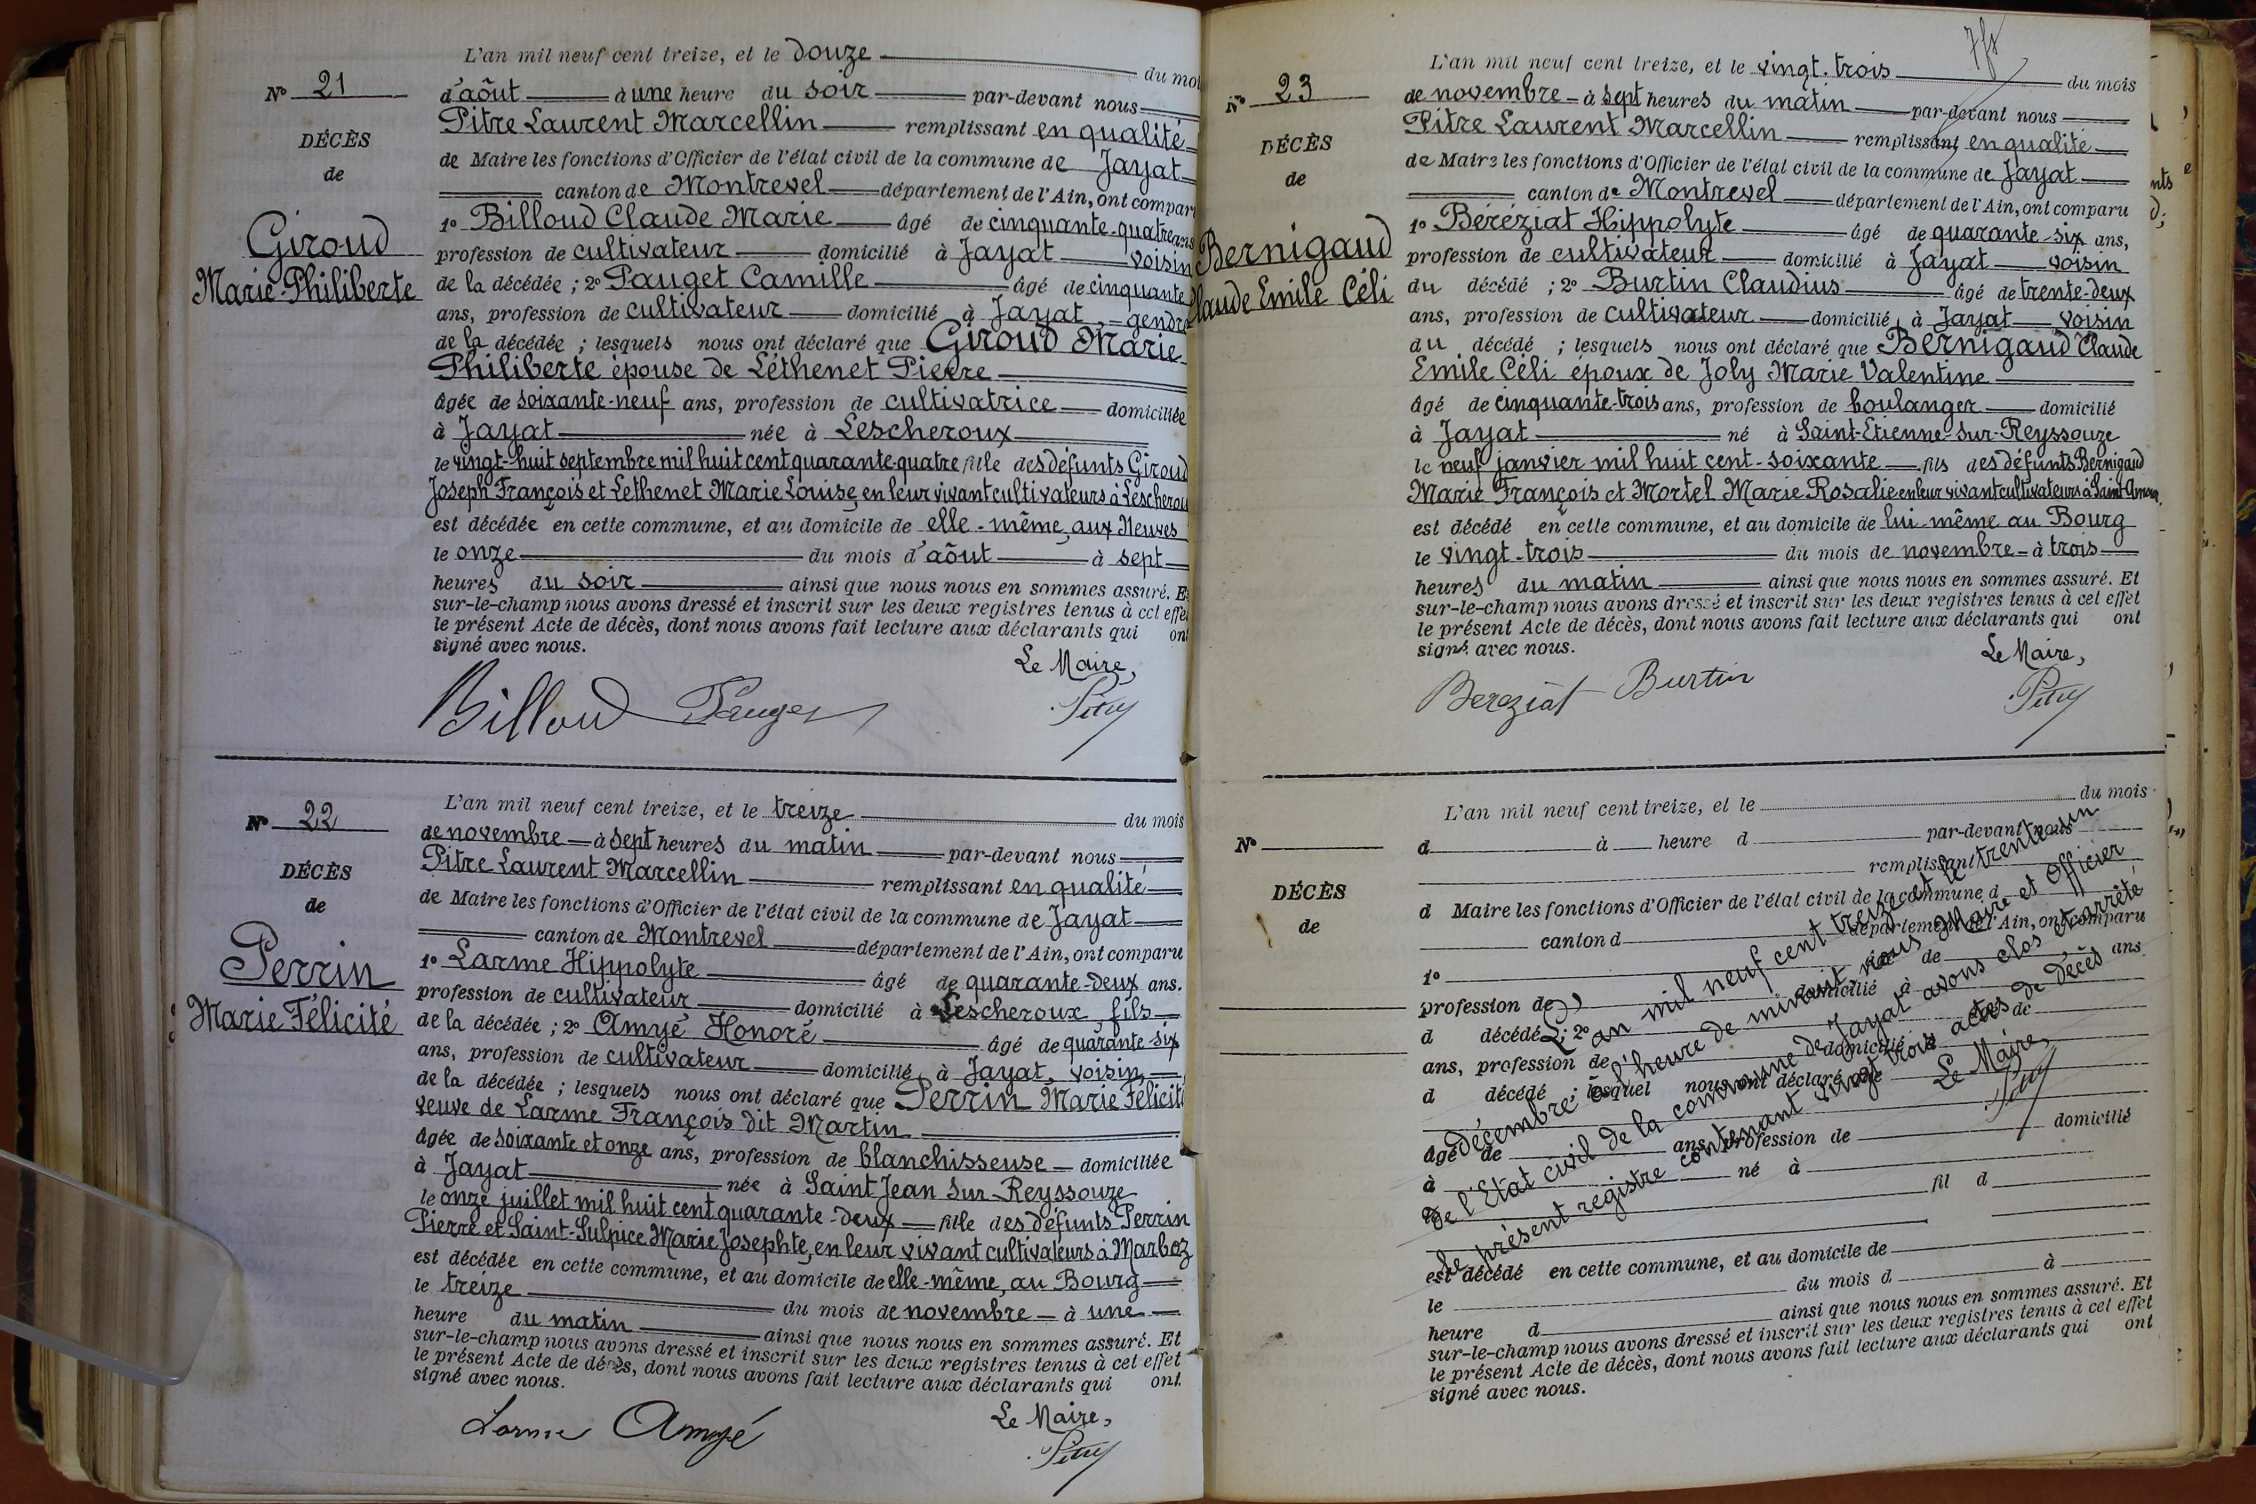 L'an mil neuf cent treize, et le douze du mois
Nº 21
d'août à une heure du soir par-devant nous
Pitre Laurent Marcellin remplissant en qualité
DÉCÈS
de Maire les fonctions d'Officier de l'état civil de la commune de Jayat
de
canton de Montrevel département de l'Ain, ont compar
1º Billoud Claude Marie âgé de cinquante-quatre ans
Giroud
profession de cultivateur domicilié à Jayat voisin
Marie-Philiberte
de la décédée ; 2º Pauget Camille âgé de cinquante
ans, profession de cultivateur domicilié à Jayat, gendre
de la décédée ; lesquels nous ont déclaré que Giroud Marie
Philiberte épouse de Léthenet Pierre
âgée de soixante-neuf ans, profession de cultivatrice domiciliée
à Jayat née à Lescheroux
le vingt-huit septembre mil huit cent quarante-quatre fille des défunts Giroud
Joseph François et Lethenet Marie Louise, en leur vivant cultivateurs à Lescherou
est décédée en cette commune, et au domicile de elle-même, aux Neuves
le onze du mois d'août à sept
heures du soir ainsi que nous nous en sommes assuré. E
sur-le-champ nous avons dressé et inscrit sur les deux registres tenus à cet effe
le présent Acte de décès, dont nous avons fait lecture aux déclarants qui ont
signé avec nous.
Le Maire,
Billoud Pauget Pitre
L'an mil neuf cent treize, et le treize du mois
Nº 22
de novembre à sept heures du matin par-devant nous
Pitre Laurent Marcellin remplissant en qualité
DÉCÈS
de Maire les fonctions d'Officier de l'état civil de la commune de Jayat
de
canton de Montrevel département de l'Ain, ont comparu
1º Larme Hippolyte âgé de quarante-deux ans.
Perrin
profession de cultivateur domicilié à Lescheroux fils
Marie Félicité
de la décédée ; 2º Amyé Honoré âgé de quarante-six
ans, profession de cultivateur domicilié à Jayat, voisin,
de la décédée ; lesquels nous ont déclaré que Perrin Marie Félicité
veuve de Larme François dit Martin
âgée de soixante et onze ans, profession de blanchisseuse domiciliée
à Jayat née à Saint Jean Sur-Reyssouze
le onze juillet mil huit cent quarante-deux fille des défunts Perrin
Pierre et Saint-Sulpice Marie Josephte, en leur vivant cultivateurs à Marboz
est décédée en cette commune, et au domicile de elle-même, au Bourg
le treize du mois de novembre à une
heure du matin ainsi que nous nous en sommes assuré. Et
sur-le-champ nous avons dressé et inscrit sur les deux registres tenus à cet effet
le présent Acte de décès, dont nous avons fait lecture aux déclarants qui ont
signé avec nous.
Le Maire,
Larme Amyé Pitre
L'an mil neuf cent treize, et le vingt-trois du mois
Nº 23
de novembre à sept heures du matin par-devant nous
Pitre Laurent Marcellin remplissant en qualité
DÉCÈS
de Maire les fonctions d'Officier de l'état civil de la commune de Jayat
de
canton de Montrevel département de l'Ain, ont comparu
1º Béréziat Hippolyte âgé de quarante-six ans,
Bernigaud
profession de cultivateur domicilié à Jayat voisin
Claude Emile Céli
du décédé ; 2º Burtin Claudius âgé de trente-deux
ans, profession de cultivateur domicilié à Jayat voisin
du décédé ; lesquels nous ont déclaré que Bernigaud Claude
Emile Céli époux de Joly Marie Valentine
âgé de cinquante-trois ans, profession de boulanger domicilié
à Jayat né à Saint-Etienne-Sur-Reyssouze
le neuf janvier mil huit cent-soixante fils des défunts Bernigaud
Marie François et Mortel Marie Rosalie en leur vivant cultivateurs à Saint-Amour
est décédé en cette commune, et au domicile de lui-même au Bourg
le vingt-trois du mois de novembre à trois
heures du matin ainsi que nous nous en sommes assuré. Et
sur-le-champ nous avons dressé et inscrit sur les deux registres tenus à cet effet
le présent Acte de décès, dont nous avons fait lecture aux déclarants qui ont
signé avec nous.
Le Maire,
Bereziat Burtin Pitre
L'an mil neuf cent treize, et le du mois
Nº
d à heure d par-devant nous
remplissant
DÉCÈS
d Maire les fonctions d'Officier de l'état civil de la commune d
de
canton d département de l'Ain, ont comparu
1º âgé de
profession de domicilié à
d décédé ; 2º âgé de ans
ans, profession de domicilié à
d décédé ; lesquel nous ont déclaré que
âgé de ans, profession de domicilié
à né à
le fil d
est décédé en cette commune, et au domicile de
le du mois d à
heure d ainsi que nous nous en sommes assuré. Et
sur-le-champ nous avons dressé et inscrit sur les deux registres tenus à cet effet
le présent Acte de décès, dont nous avons fait lecture aux déclarants qui ont
signé avec nous.
L'an mil neuf cent treize et le trente-un
décembre à l'heure de minuit, nous Maire et Officier
de l'Etat civil de la commune de Jayat avons clos et arrêté
le présent registre contenant vingt trois actes de décès
Le Maire,
Pitre